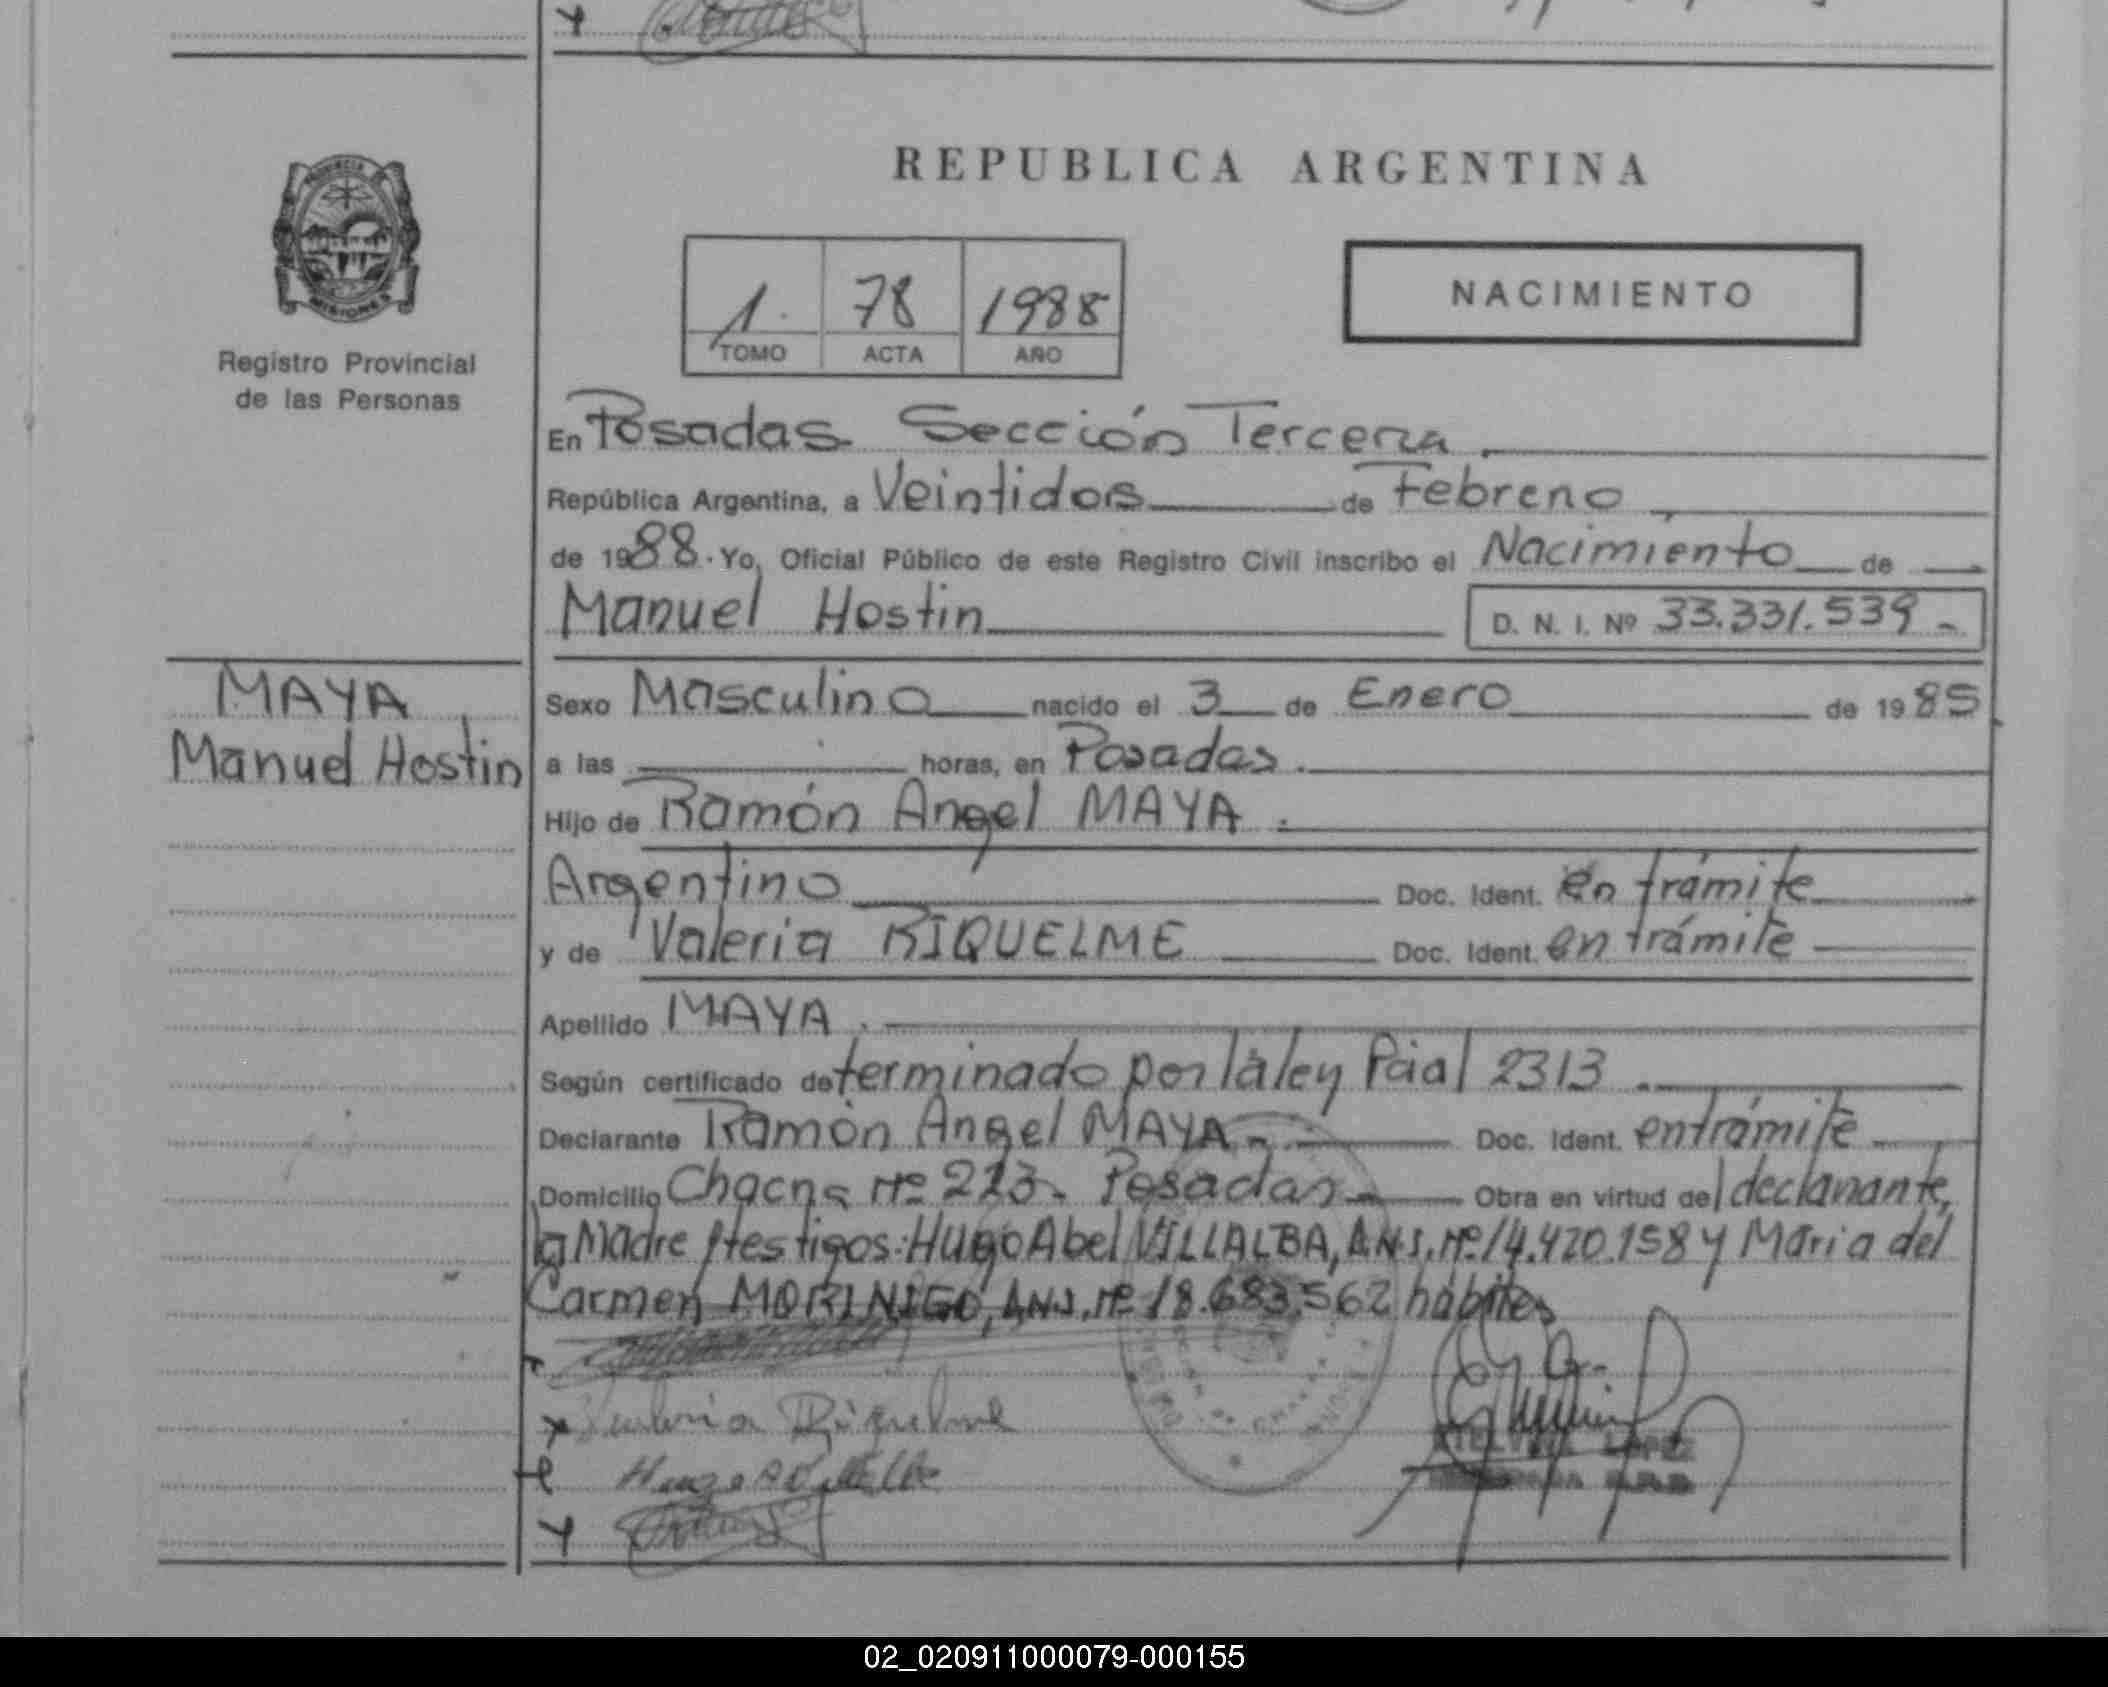 REPUBLICA ARGENTINA
PROVINCIA DE
MISIONES
Registro Provincial
de las Personas
1. 78 1988
TOMO ACTA AÑO
NACIMIENTO
En Posadas Sección Tercera
República Argentina, a Veintidos de Febrero
de 1988. Yo, Oficial Público de este Registro Civil inscribo el Nacimiento de
Manuel Hostin D. N. I. Nº 33.331.539 -
MAYA
Manuel Hostin
Sexo Masculino nacido el 3 de Enero de 1985
a las horas, en Posadas.
Hijo de Ramón Angel MAYA.
Argentino Doc. Ident. en trámite
y de Valeria RIQUELME Doc. Ident. en trámite
Apellido MAYA.
Según certificado determinado por la ley Pcial 2313.
Declarante Ramón Angel MAYA - Doc. Ident. en trámite
Domicilio Chacra Nº 223 - Posadas - Obra en virtud del declarante,
la Madre y testigos: Hugo Abel VILLALBA, D.N.I. Nº 14.420.158 y Maria del
Carmen MORINIGO, D.N.I. Nº 18.683.562 hábiles
Valeria Riquelme
LOPEZ
02_020911000079-000155